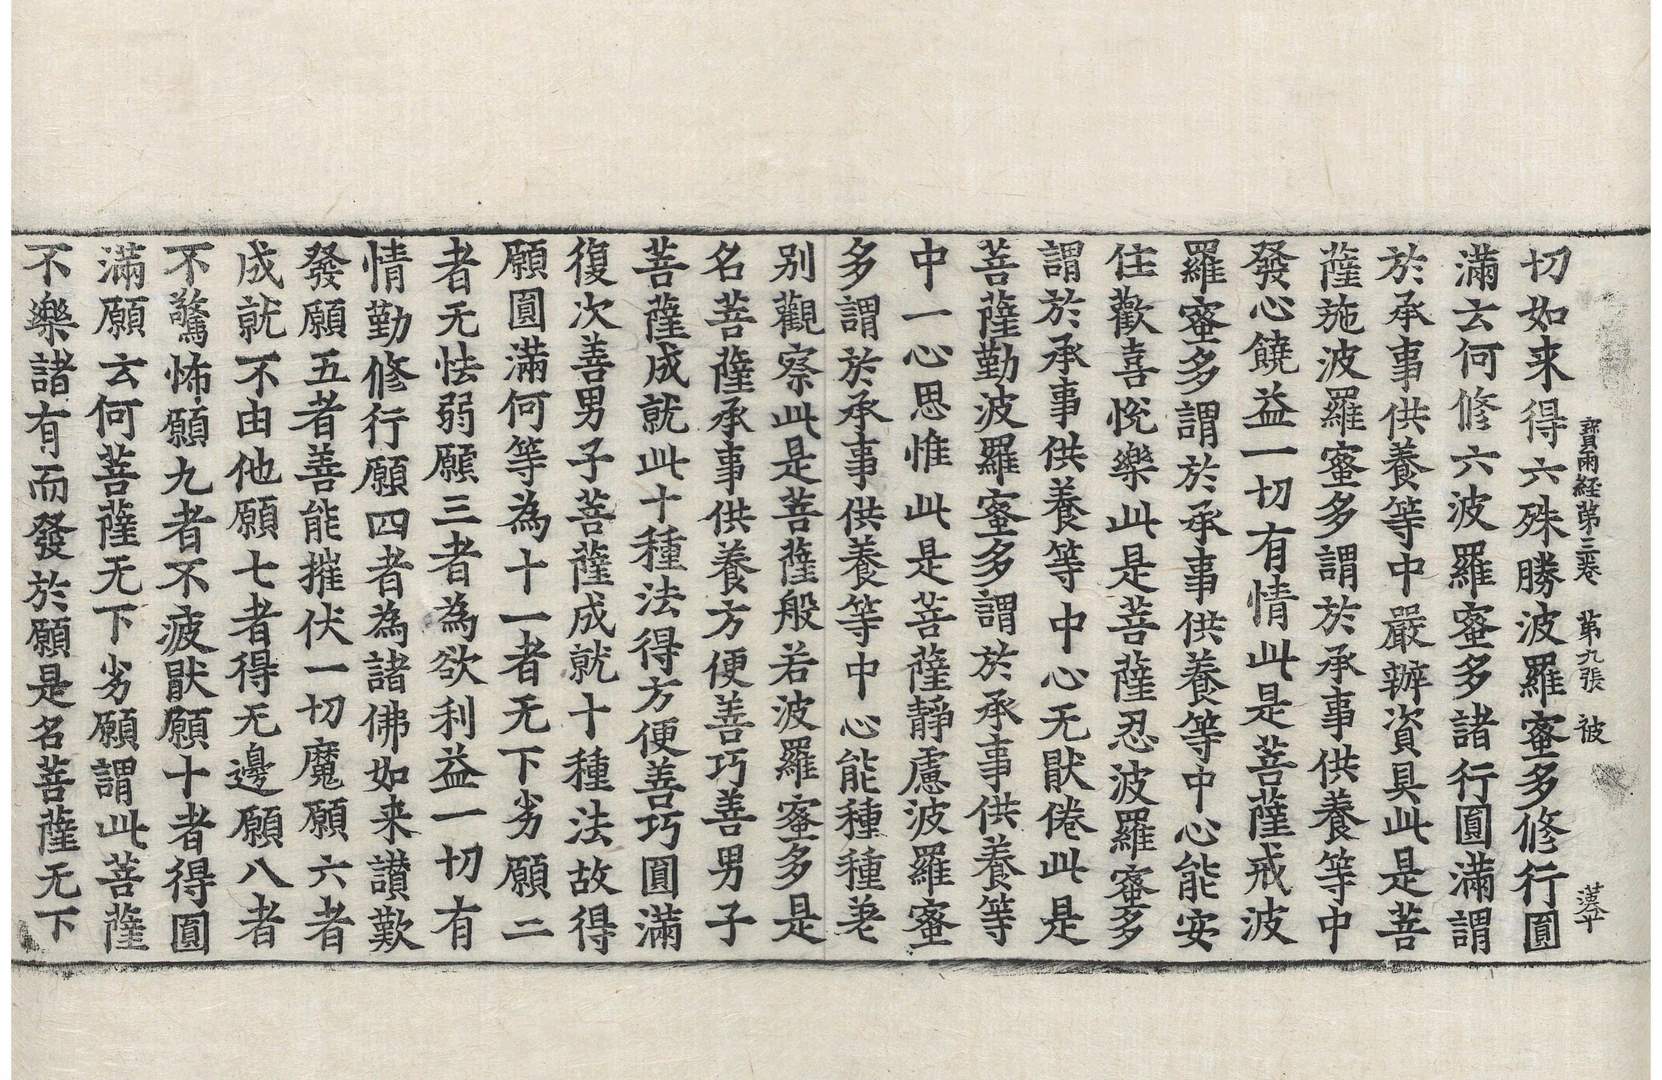 寶雨経第三卷　第九張　被　漢平
切如来得六殊勝波羅蜜多修行圓
滿云何修六波羅蜜多諸行圓滿謂
於承事供養等中嚴辦資具此是菩
薩施波羅蜜多謂於承事供養等中
發心饒益一切有情此是菩薩戒波
羅蜜多謂於承事供養等中心能安
住歡喜悅樂此是菩薩忍波羅蜜多
謂於承事供養等中心无猒倦此是
菩薩勤波羅蜜多謂於承事供養等
中一心思惟此是菩薩靜慮波羅蜜
多謂於承事供養等中心能種種差
别觀察此是菩薩般若波羅蜜多是
名菩薩承事供養方便善巧善男子
菩薩成就此十種法得方便善巧圓滿
復次善男子菩薩成就十種法故得
願圓滿何等為十一者无下劣願二
者无怯弱願三者為欲利益一切有
情勤修行願四者為諸佛如来讃歎
發願五者善能摧伏一切魔願六者
成就不由他願七者得无邊願八者
不驚怖願九者不疲猒願十者得圓
滿願云何菩薩无下劣願謂此菩薩
不樂諸有而發於願是名菩薩无下